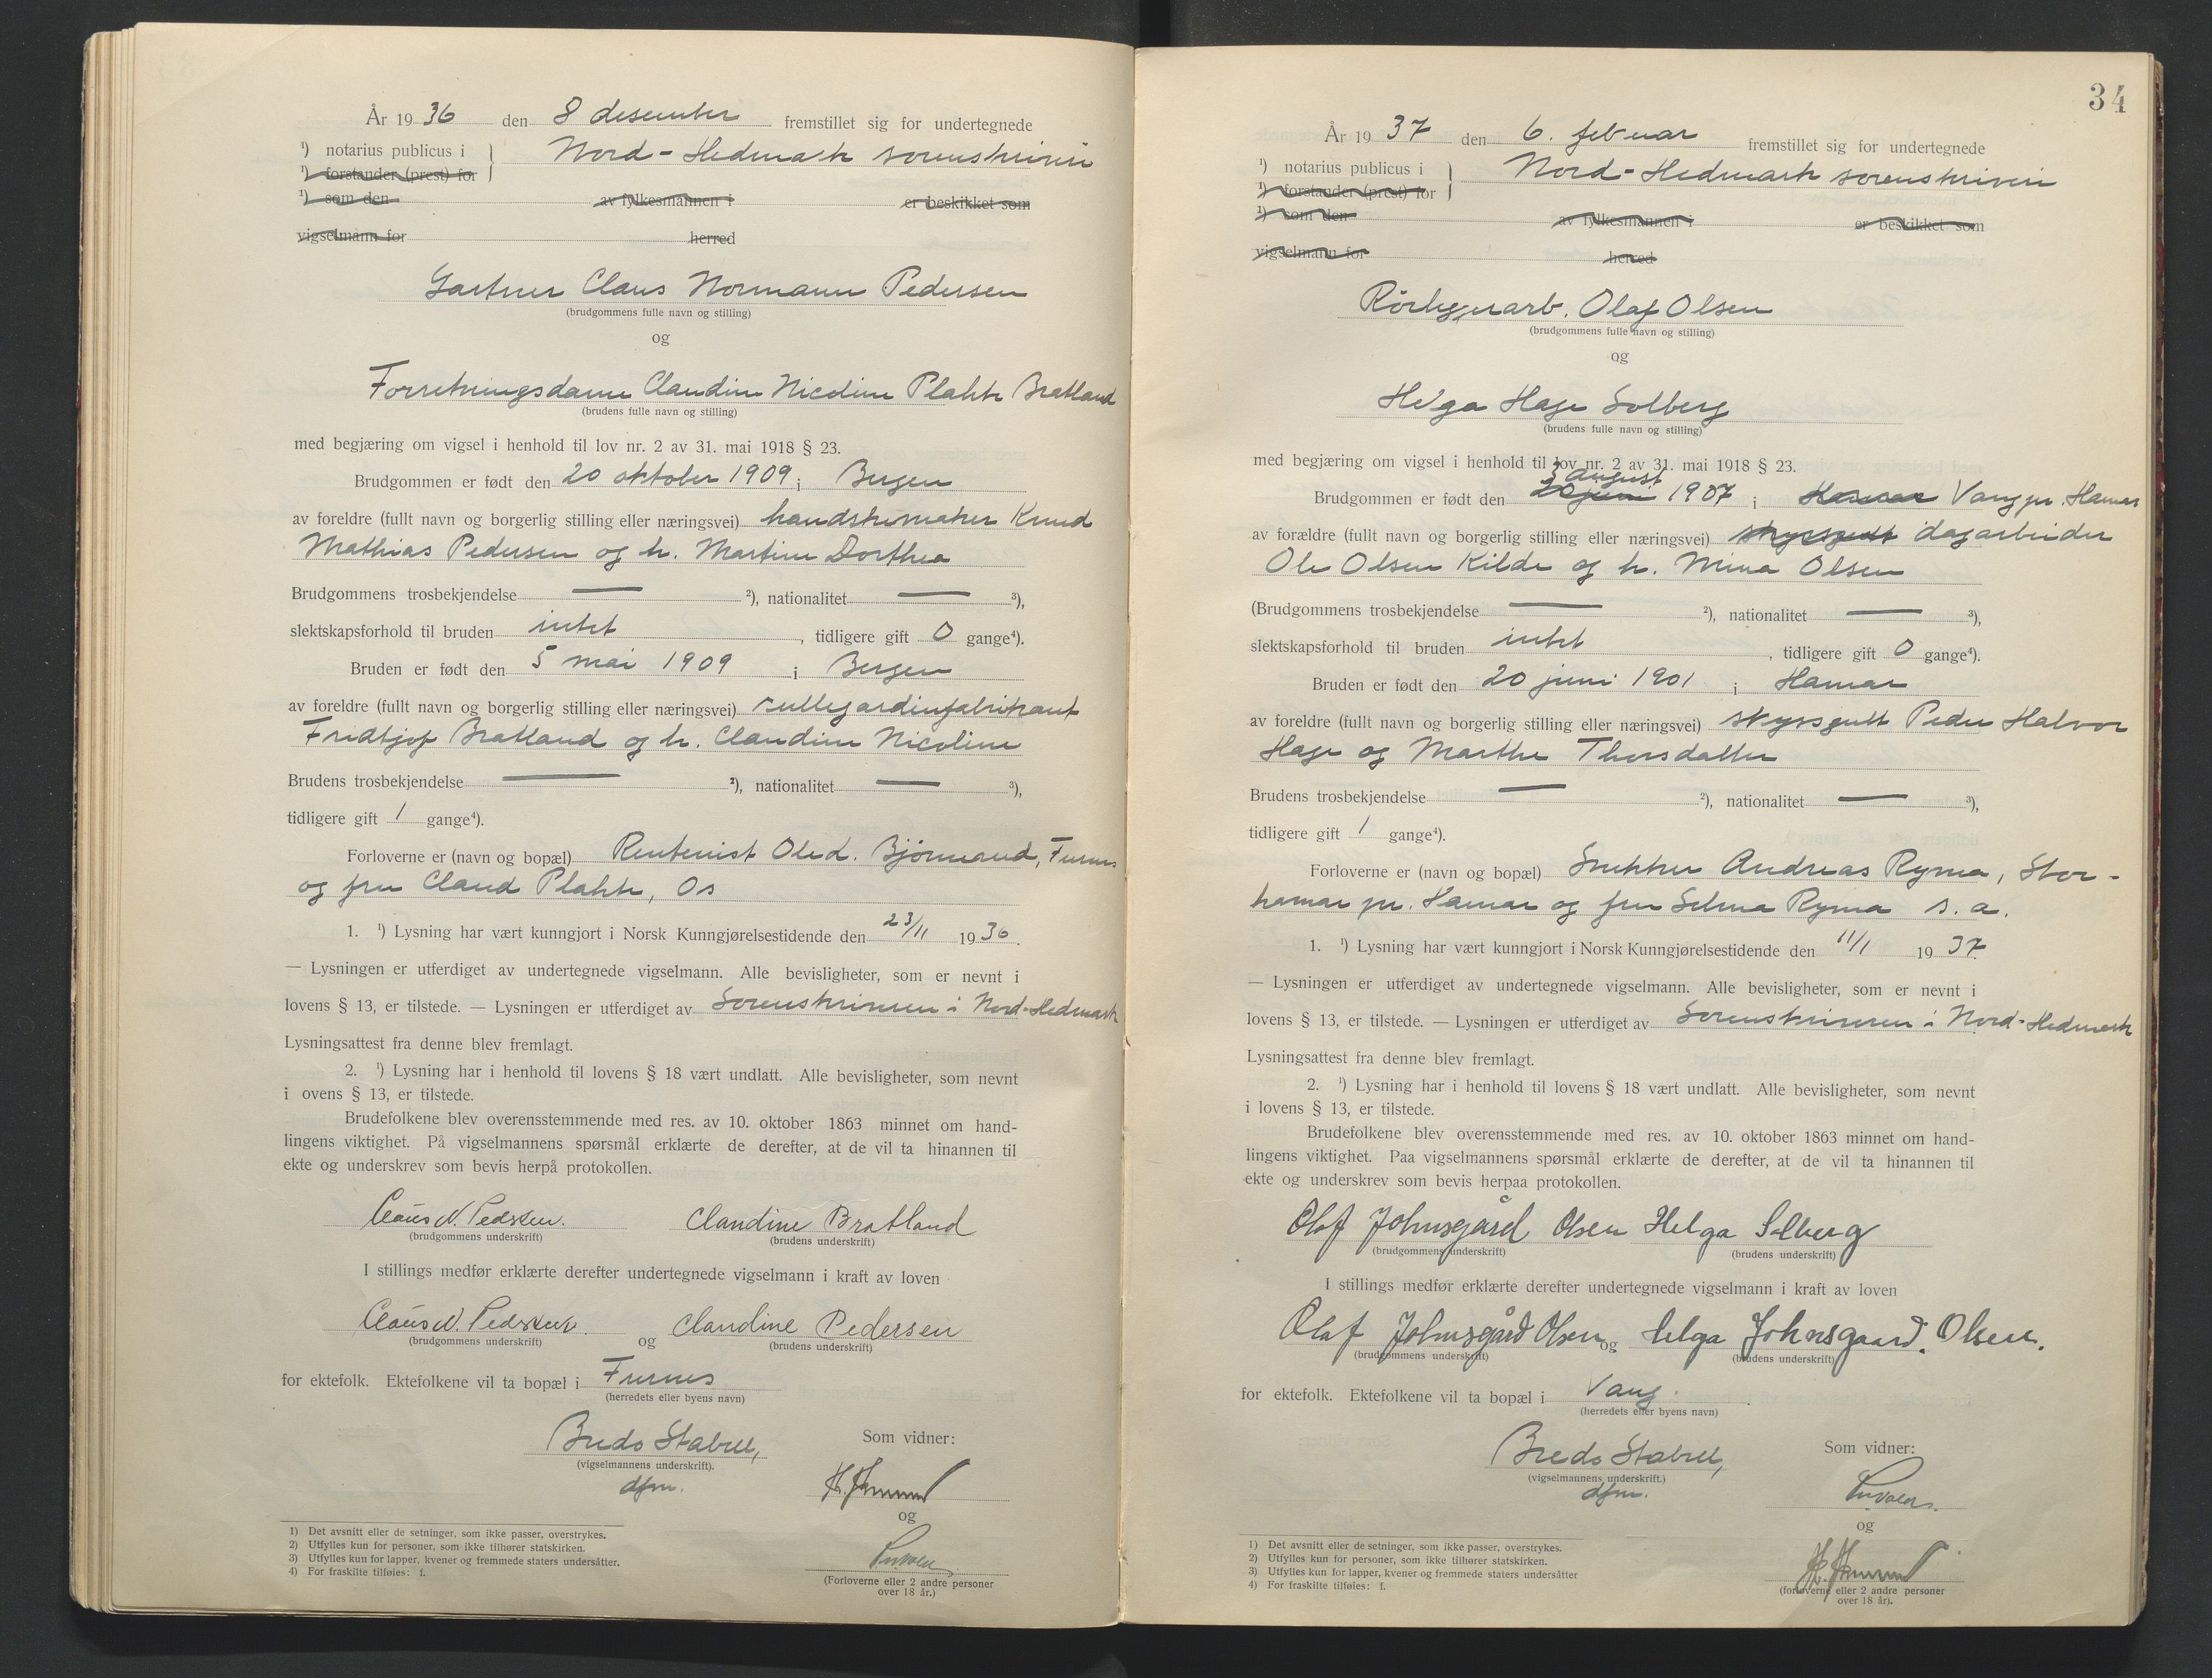 År 1936 den 8 desember fremstillet sig for undertegnede
¹) notarius publicus i } Nord-Hedmark sorenskriveri
¹) forstander (prest) for
¹) som den av fylkesmannen i er beskikket som
vigselmann for herred
Gartner Claus Normann Pedersen
(brudgommens fulle navn og stilling)
og
Forretningsdame Claudine Nicoline Plahte Bratland
(brudens fulle navn og stilling)
med begjæring om vigsel i henhold til lov nr. 2 av 31. mai 1918 § 23.
Brudgommen er født den 20 oktober 1909 i Bergen
av foreldre (fullt navn og borgerlig stilling eller næringsvei) handskemaker Knud
Mathias Pedersen og h. Martine Dorthea
Brudgommens trosbekjendelse — ²), nationalitet — ³),
slektskapsforhold til bruden intet, tidligere gift 0 gange⁴).
Bruden er født den 5 mai 1909 i Bergen
av foreldre (fullt navn og borgerlig stilling eller næringsvei) rullegardinfabrikant
Fridtjof Bratland og h. Claudine Nicoline
Brudens trosbekjendelse — ²), nationalitet — ³),
tidligere gift 1 gange⁴).
Forloverne er (navn og bopæl) Rentenist Ole d. Bjørnerud, Furnes
og fru Claud Plahte, Os
1. ¹) Lysning har vært kunngjort i Norsk Kunngjørelsestidende den 23/11 1936.
— Lysningen er utferdiget av undertegnede vigselmann. Alle bevisligheter, som er nevnt i
lovens § 13, er tilstede. — Lysningen er utferdiget av Sorenskriveren i Nord-Hedmark
Lysningsattest fra denne blev fremlagt.
2. ¹) Lysning har i henhold til lovens § 18 vært undlatt. Alle bevisligheter, som nevnt
i ovens § 13, er tilstede.
Brudefolkene blev overensstemmende med res. av 10. oktober 1863 minnet om hand-
lingens viktighet. På vigselmannens spørsmål erklærte de derefter, at de vil ta hinannen til
ekte og underskrev som bevis herpå protokollen.
Claus N. Pedersen. Claudine Bratland
(brudgommens underskrift) (brudens underskrift)
I stillings medfør erklærte derefter undertegnede vigselmann i kraft av loven
Claus N. Pedersen og Claudine Pedersen
(brudgommens underskrift) (brudens underskrift)
for ektefolk. Ektefolkene vil ta bopæl i Furnes
(herredets eller byens navn)
Bredo Stabell, Som vidner:
(vigselmannens underskrift).
dfm.
og
(Forloverne eller 2 andre personer
over 18 år.)
1) Det avsnitt eller de setninger, som ikke passer, overstrykes.
2) Utfylles kun for personer, som ikke tilhører statskirken.
3) Utfylles kun for lapper, kvener og fremmede staters undersåtter.
4) For fraskilte tilføies: f.
34
År 1937 den 6. februar fremstillet sig for undertegnede
¹) notarius publicus i } Nord-Hedmark sorenskriveri
¹) forstander (prest) for
¹) som den av fylkesmannen i er beskikket som
vigselmann for herred
Rörleggerarb. Olaf Olsen
(brudgommens fulle navn og stilling)
og
Helga Hage Solberg
(brudens fulle navn og stilling)
med begjæring om vigsel i henhold til lov nr. 2 av 31. mai 1918 § 23.
3 august
Brudgommen er født den 20 juni 1907 i Hamar Vang pr. Hamar
av forældre (fullt navn og borgerlig stilling eller næringsvei) skyssgutt dagarbeider
Ole Olsen Kilde og h. Mina Olsen
(Brudgommens trosbekjendelse — ²), nationalitet — ³),
slektskapsforhold til bruden intet, tidligere gift 0 gange⁴).
Bruden er født den 20 juni 1901 i Hamar
av foreldre (fullt navn og borgerlig stilling eller næringsvei) skyssgutt Peder Halvor
Hage og Marthe Thorsdatter
Brudens trosbekjendelse — ²), nationalitet — ³),
tidligere gift 1 gange⁴).
Forloverne er (navn og bopæl) Snekker Andreas Ryma, Stor-
hamar pr. Hamar og fru Selma Ryma s. a.
1. ¹) Lysning har vært kunngjort i Norsk Kunngjørelsestidende den 11/1 1937.
— Lysningen er utferdiget av undertegnede vigselmann. Alle bevisligheter, som er nevnt i
lovens § 13, er tilstede. — Lysningen er utferdiget av Sorenskriveren i Nord-Hedmark
Lysningsattest fra denne blev fremlagt.
2. ¹) Lysning har i henhold til lovens § 18 vært undlatt. Alle bevisligheter, som nevnt
i lovens § 13, er tilstede.
Brudefolkene blev overensstemmende med res. av 10. oktober 1863 minnet om hand-
lingens viktighet. Paa vigselmannens spørsmål erklærte de derefter, at de vil ta hinannen til
ekte og underskrev som bevis herpaa protokollen.
Olaf Johnsgård Olsen Helga Solberg
(brudgommens underskrift) (brudens underskrift)
I stillings medfør erklærte derefter undertegnede vigselmann i kraft av loven
Olaf Johnsgård Olsen og Helga Johnsgaard. Olsen.
(brudgommens underskrift) (brudens underskrift)
for ektefolk. Ektefolkene vil ta bopæl i Vang.
(herredets eller byens navn)
Bredo Stabell, Som vidner:
(vigselmannens underskrift.)
dfm.
og
(forloverne eller 2 andre personer
over 18 år).
1) Det avsnitt eller de setninger, som ikke passer, overstrykes.
2) Utfylles kun for personer, som ikke tilhører statskirken.
3) Utfylles kun for lapper, kvener og fremmede staters undersåtter
4) For fraskilte tilføies: f.